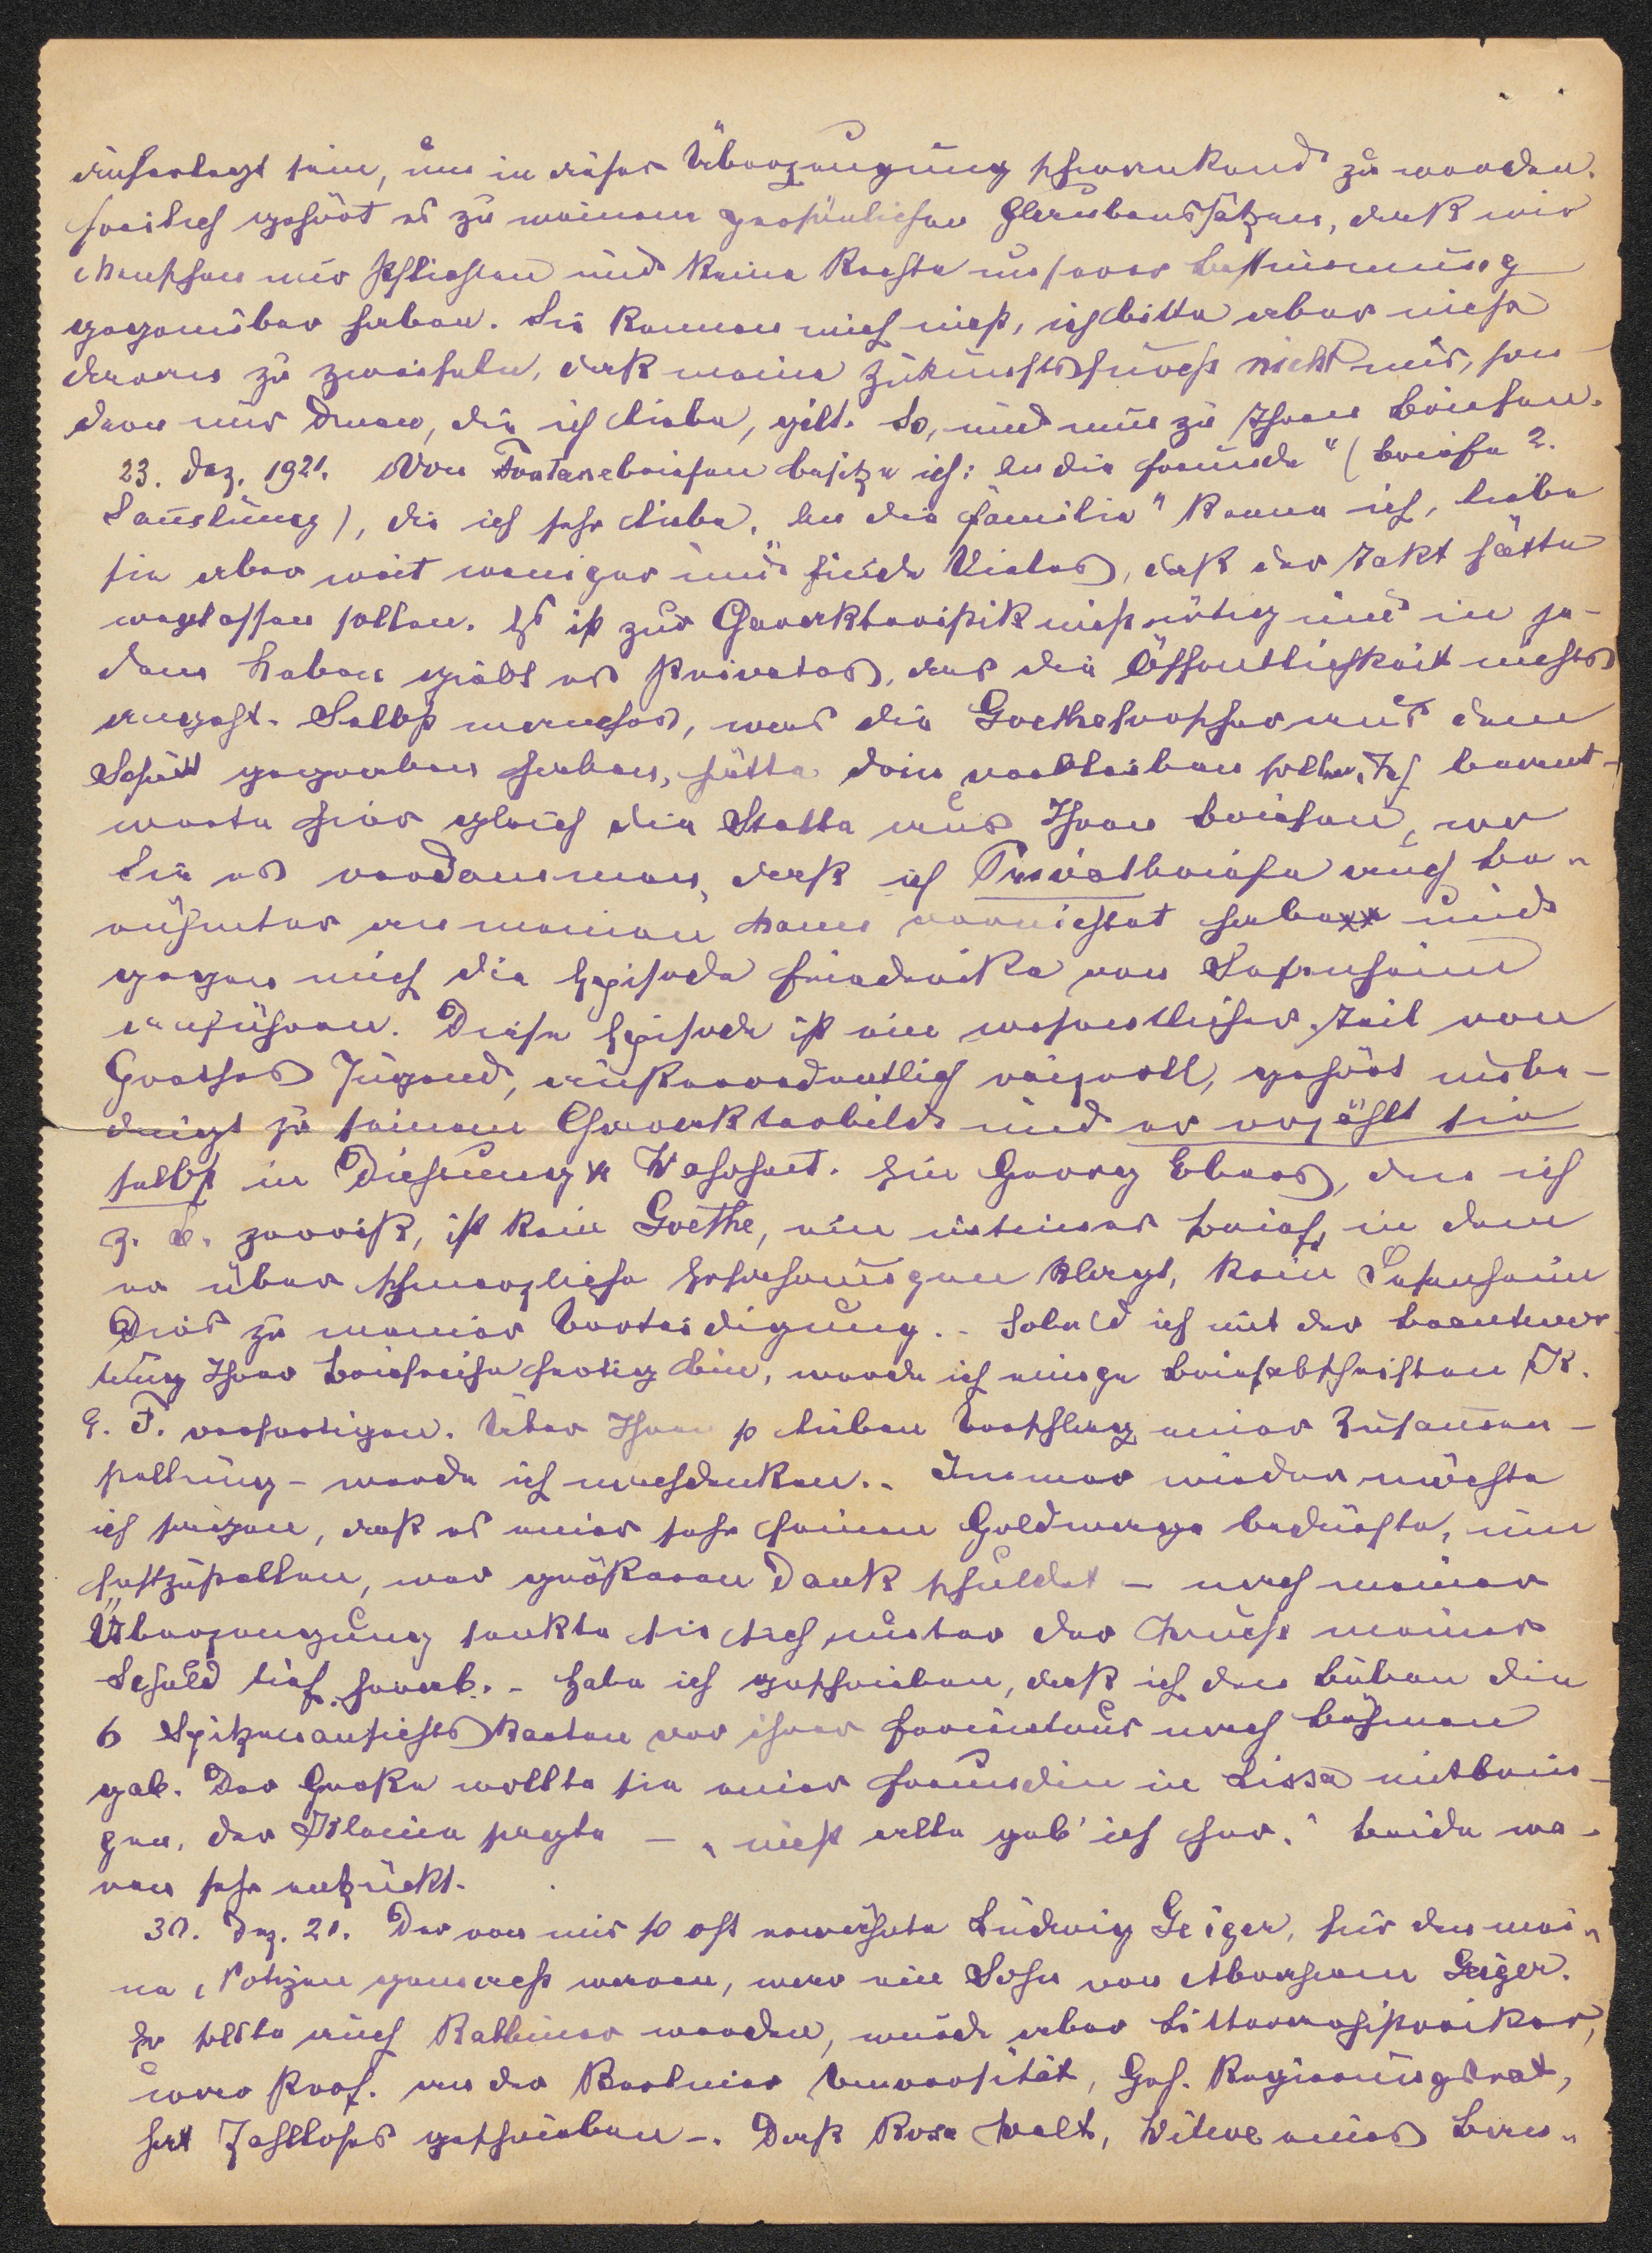 auferlegt sein, um in dieser Überzeugung schwankend zu werden.
Freilich gehört es zu meinem persönlichen Glaubenssätzen, daß wir
Menschen nur Pflichten und keine Rechte unserer Bestimmung
gegenüber haben. Sie kennen mich nicht, ich bitte aber nicht
daran zu zweifeln, daß meine Zukunftsfurcht nicht mir, son-
dern nur denen, die ich liebe, gilt. So, und nun zu Ihren Briefen.
23. Dez. 1921. Von Fontanebriefen besitze ich: An die Freunde" (Briefe 2.
Samlung), die ich sehr liebe. An die Familie" kenne ich, liebe
sie aber weit weniger und finde Vieles, daß der Takt hätte
weglassen sollen. Es ist zur Charakteristik nicht nötig und in je-
dem Leben giebt es Privates, das die Öffentlichkeit nichts
angeht. Selbst manches, was die Goetheforscher aus dem
Schutt gegraben haben, hätte drin verbleiben sollen. Ich beant-
worte hier gleich die Stelle aus Ihren Briefen, wo
Sie es verdammen, daß ich Privatbriefe auch be-
rühmter an meinen Mann vernichtet habe und
gegen mich die Episode Friederike von Sesenheim
anführen. Diese Episode ist ein wesentlicher Teil von
Goethes Jugend, außerordentlich reizvoll, gehört unbe-
dingt zu seinem Charakterbilde und er erzählt sie
selbst in Dichtung & Wahrheit. Ein Georg Ebers, den ich
z. B. zerriß, ist kein Goethe, ein intimer Brief, in dem
er über schmerzliche Erfahrungen klagt, kein Sesenheim
Dies zu meiner Verteidigung. - Sobald ich mit der Beantwor
tung Ihrer Briefreihe fertig bin, werde ich einige Briefabschriften K.
E. F. verfertigen. Über Ihren so lieben Vorschlag einer Zusammen-
stellung - werde ich nachdenken. - Immer wieder möchte
ich sagen, daß es einer sehr feinen Goldwage bedürfte, um
festzustellen, wer größeren Dank schuldet - nach meiner
Überzeugung senkte sie sich unter der Wucht meiner
Schuld tief herab. - Habe ich geschrieben, daß ich den Buben die
6 Spitzenansichtskarten vor ihrer Ferientour nach Böhmen
gab. Der Große wollte sie einer Freundin in Lissa mitbrin-
gen, der Kleine sagte - „nicht alle geb' ich her." Beide wa-
ren sehr entzückt.
30. Dez. 21. Der von mir so oft erwähnte Ludwig Geiger, für den mei-
ne Notizen gemacht waren, war ein Sohn von Abraham Geiger.
Er sollte auch Rabbiner werden, wurde aber Litterarhistoriker,
war Prof. an der Berliner Universität, Geh. Regierungsrat,
hat Zahlloses geschrieben -. Daß Rosa Welt, Witwe eines Ber-